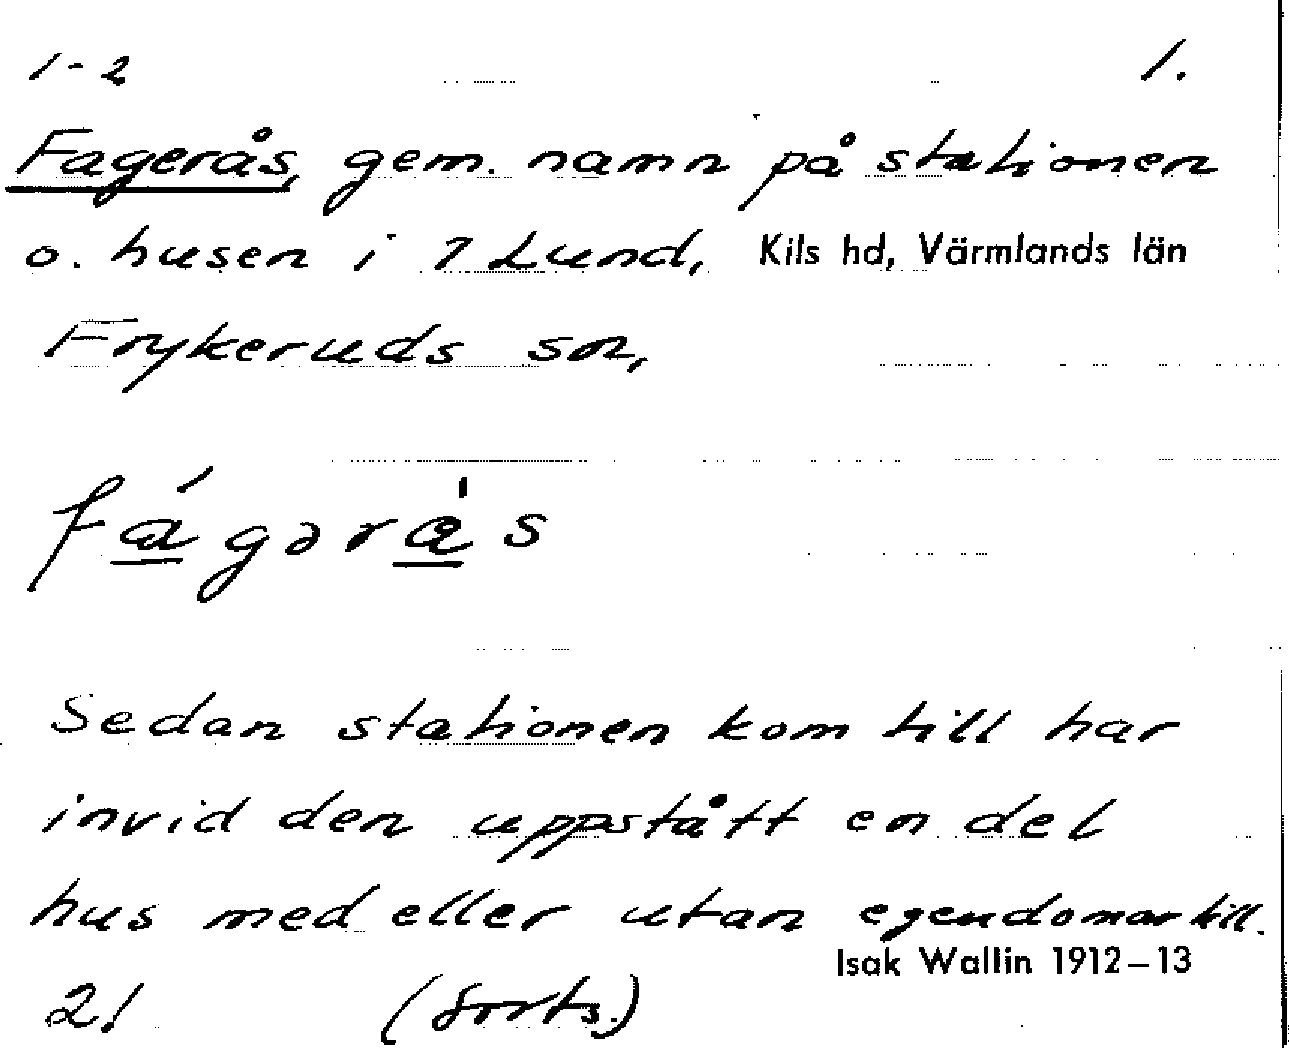 1-2 1.
Fagerås, gem. namn på stationen
o. husen i 7 Lund, Kils hd, Värmlands län
Frykeruds sn,
fágərɑ̀s
Sedan stationen kom till har
invid den uppstått en del
hus med eller utan egendomar till.
Isak Wallin 1912–13
2! (forts.)